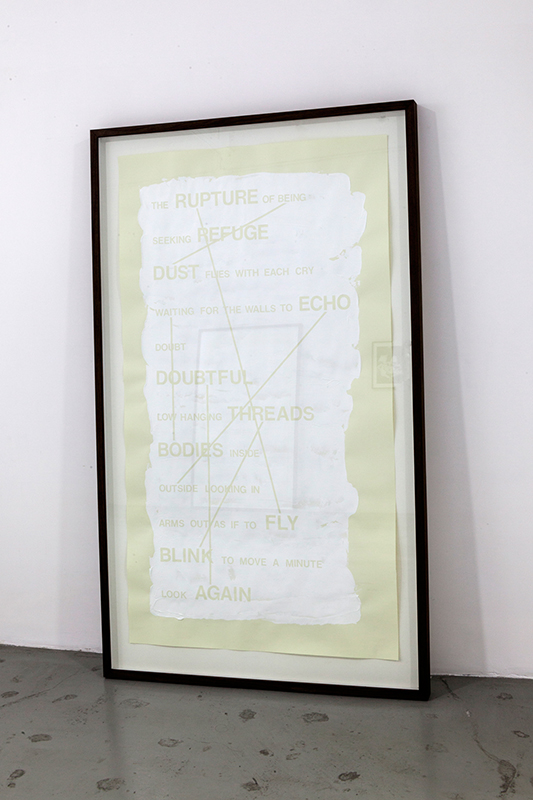 THE RUPTURE OF BEING
SEEKING REFUGE
DUST FLIES WITH EACH CRY
WAITING FOR THE WALLS TO ECHO
DOUBT
DOUBTFUL
LOW HANGING THREADS
BODIES INSIDE
OUTSIDE LOOKING IN
ARMS OUT AS IF TO FLY
BLINK TO MOVE A MINUTE
LOOK AGAIN